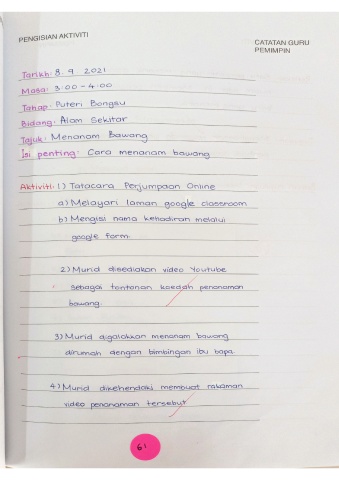 PENGISIAN AKTIVITI
CATATAN GURU
PEMIMPIN
Tarikh: 8. 9. 2021
Masa: 3:00 - 4:00
Tahap: Puteri Bongsu
Bidang: Alam Sekitar
Tajuk: Menanam Bawang
Isi penting: Cara menanam bawang
Aktiviti: 1) Tatacara Perjumpaan Online
a) Melayari laman google classroom
b) Mengisi nama kehadiran melalui
google form.
2) Murid disediakan video Youtube
sebagai tontonan kaedah penanaman
bawang.
3) Murid digalakkan menanam bawang
dirumah dengan bimbingan ibu bapa.
4) Murid dikehendaki membuat rakaman
video penanaman tersebut
61